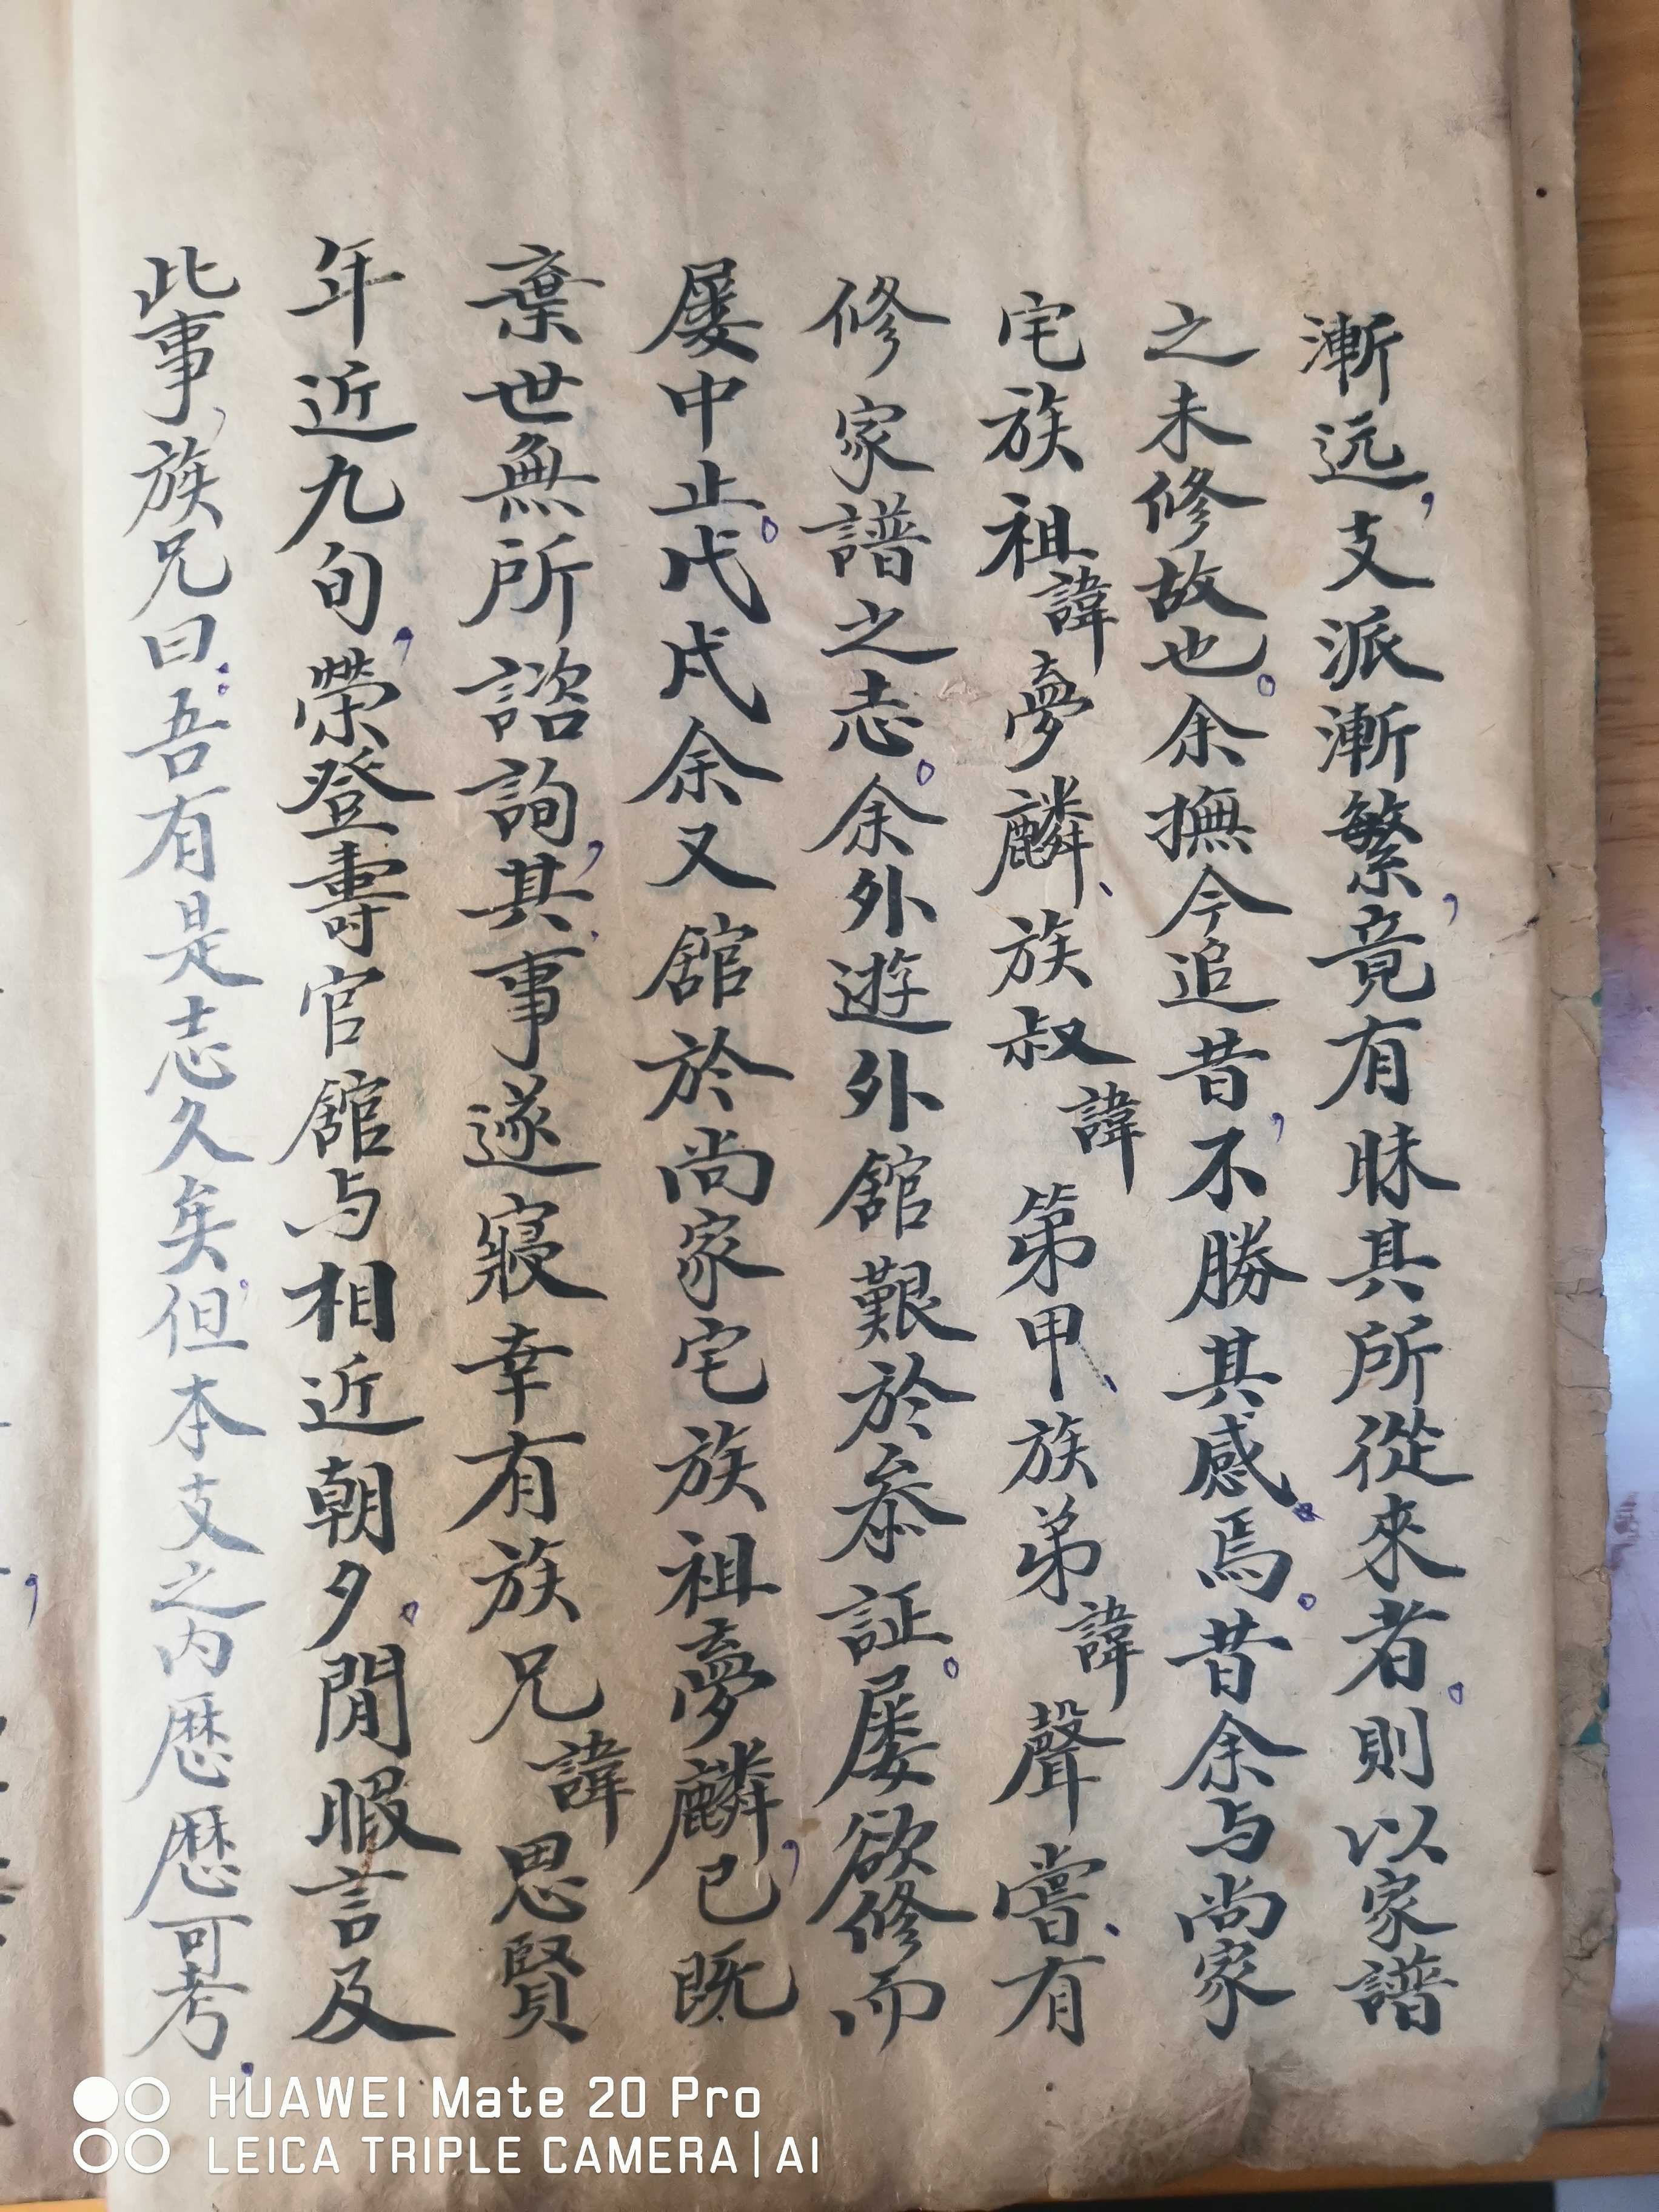 漸远，支派漸繁，竟有昧其所從來者。則以家譜
之未修故也。余撫今追昔，不勝其感焉。昔余与尚家
宅族祖諱夢麟、族叔諱第甲、族弟諱聲嘗、有
修家譜之志。余外遊外舘艱於叅証。屡欲修而
屡中止。戊戌余又舘於尚家宅族祖夢麟，已既
棄世無所諮詢，其事遂寢幸有族兄諱思賢
年近九旬，榮登壽官舘与相近朝夕。閒暇言及
此事，族兄曰：吾有是志久矣。但本支之内歴歴可考，
HUAWEI Mate 20 Pro
LEICA TRIPLE CAMERA | AI